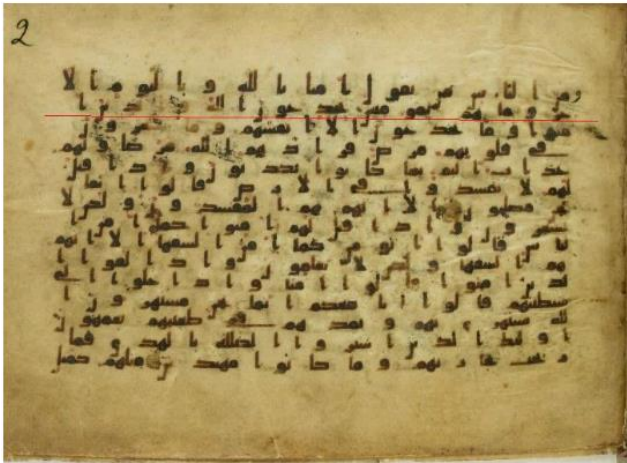 2
ومن الناس من يقول امنا بالله وباليوم الا
خر وما هم بمومنين يخدعون الله والذين ا
منوا وما يخدعون الا انفسهم وما يشعرون
في قلوبهم مرض فزادهم الله مرضا ولهم
عذاب اليم بما كانوا يكذبون واذا قيل
لهم لا تفسدوا في الارض قالوا انما
نحن مصلحون الا انهم هم المفسدون ولكن لا
يشعرون واذا قيل لهم امنوا كما امن ا
لناس قالوا انومن كما امن السفها الا انهم
هم السفها ولكن لا يعلمون واذا لقوا ا
لذين امنوا قالوا امنا واذا خلوا الى
شيطينهم قالوا انا معكم انما نحن مستهزون ا
لله يستهزى بهم ويمدهم في طغينهم يعمهون
اوليك الذين اشتروا الضللة بالهدى فما
ربحت تجرتهم وما كانوا مهتدين مثلهم كمثل